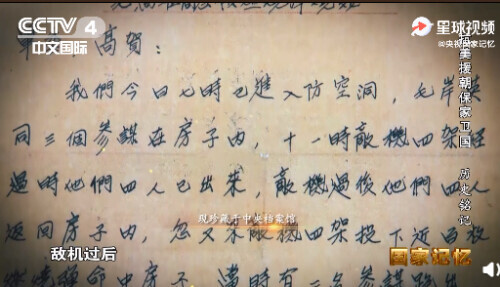 CCTV 4
中文国际
星球视频
@央视国家记忆
高賀：
我們今日七時已進入防空洞，毛岸英
同三個參謀在房子內，十一時敵機四架經
過時他們四人已出來，敵機過後他們四人
返回房子內，忽又來敵機四架投下近百枚
燃燒彈命中房子，當時有二名參謀跑出
抗美援朝保家卫国 历史铭记
现珍藏于中央档案馆
敌机过后
国家记忆